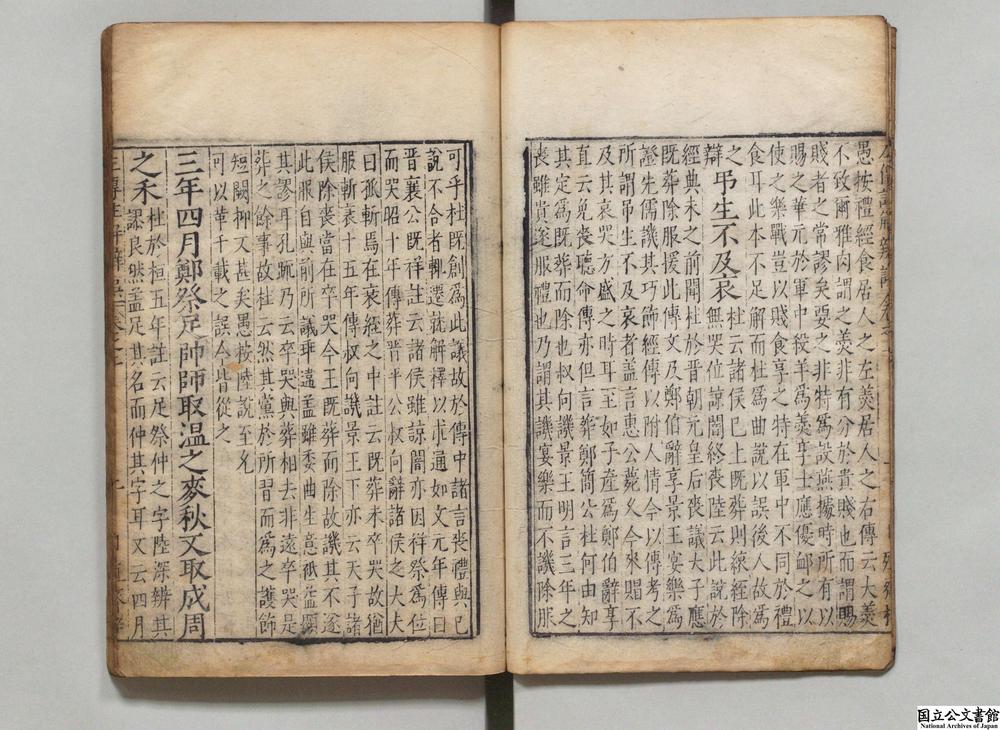 愚按禮經食居人之左羹居人之右傳云大羹
不致爾雅肉謂之羹非有分於貴賤也而謂賜
賤者之常謬矣要之非特爲設燕據時所有以
賜之華元於軍中殺羊爲羹享士應優䘏之以
使之樂戰豈以賤食享之特在軍中不同於禮
食耳此本不足解而杜爲曲說以誤後人故爲
之
弔生不及哀杜云諸侯已上既葬則縗絰除
辯無哭位諒闇終喪陸云此說於
經典未之前聞杜於晉朝元皇后喪議太子應
既葬除服援此傳文及鄭伯辭享景王宴樂爲
證先儒譏其巧飾經傳以附人情今以傳考之
所謂吊生不及哀者盖言惠公薨久今來賵不
及其哀哭方盛之時耳至如子產爲鄭伯辭享
直云免喪聽命傳亦但言葬鄭簡公杜何由知
其定爲既葬而除也叔向譏景王明言三年之
喪雖貴遂服禮也乃謂其譏宴樂而不譏除服
可乎杜既創爲此議故於傳中諸言喪禮與已
說不合者輒遷就解釋以求通如文元年傳曰
晉襄公既祥註云諸侯雖諒闇亦因祥祭爲位
而哭昭十年傳葬晉平公叔向辭諸侯之大夫
曰孤斬焉在衰絰之中註云既葬未卒哭故猶
服斬衰十五年傳叔向譏景王下亦云天子諸
侯除喪當在卒哭今王既葬而除故譏其不遂
此服自與前所議乖違盖雖委曲生意祇益顯
其謬耳孔䟽乃云卒哭與葬相去非遠卒哭是
葬之餘事故杜云然其黨於所習而爲之護飾
短闕抑又甚矣愚按陸說至允
可以革千載之誤人皆從之
三年四月鄭祭足帥師取溫之麥秋又取成周
之禾杜於桓五年註云足祭仲之字陸深辨其
謬良然盖足其名而仲其字耳又云四月
国立公文書館
National Archives of Japan